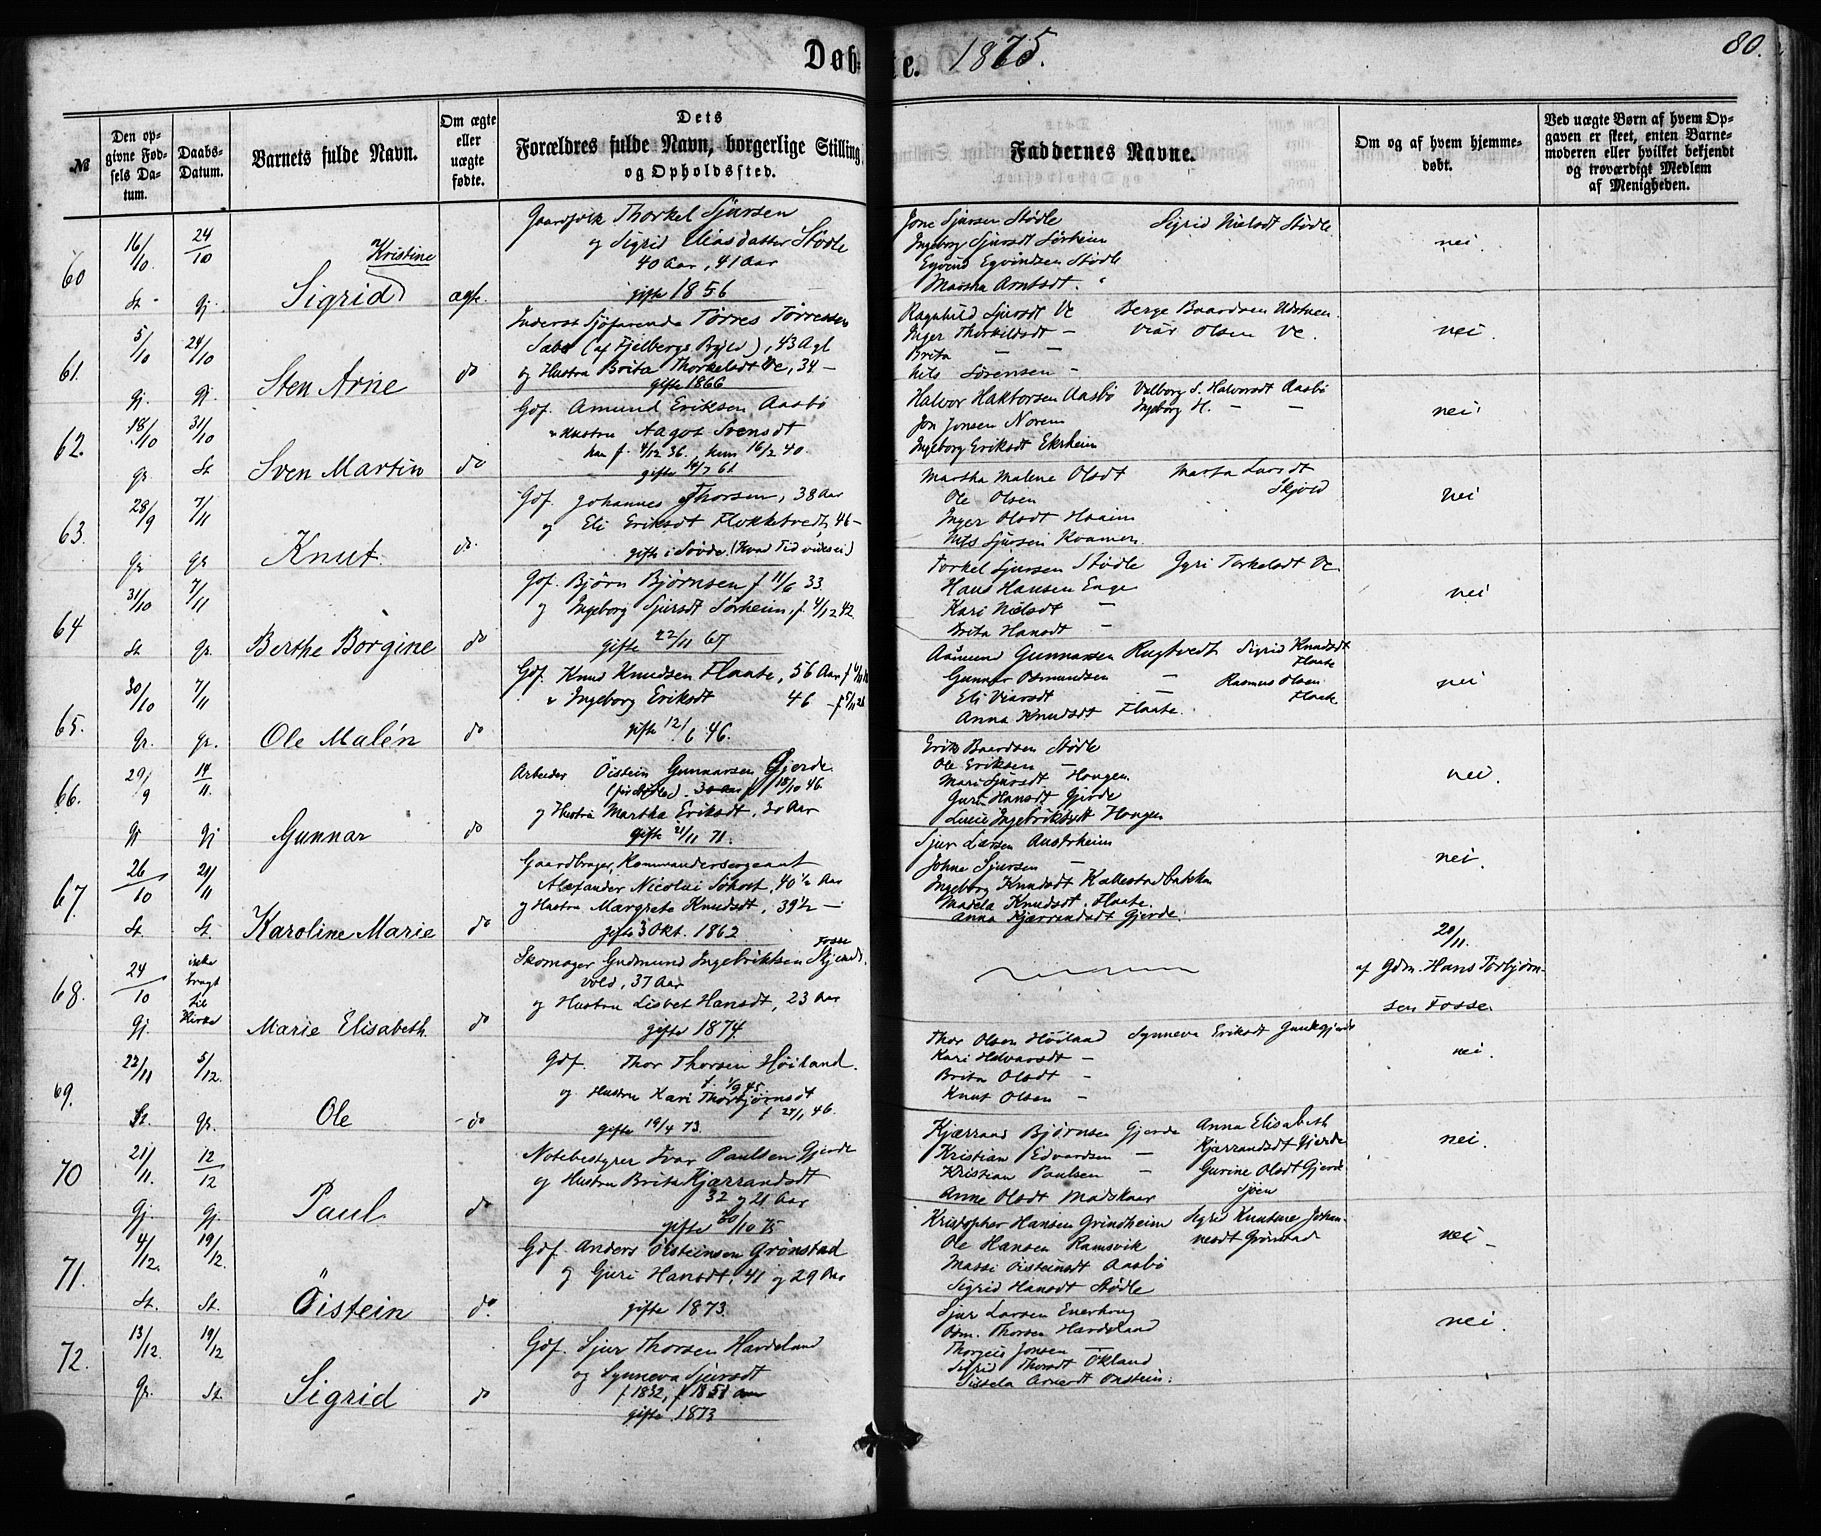 Døb
te. 1875.
80.
№
Den op-
givne Fød-
sels Da-
tum.
Daabs-
Datum.
Barnets fulde Navn.
Om ægte
eller
uægte
fødte.
Dets
Forældres fulde Navn, borgerlige Stilling
og Opholdssted.
Faddernes Navne.
Om og af hvem hjemme-
døbt.
Ved uægte Børn af hvem Op-
gaven er skeet, enten Barne-
moderen eller hvilket bekjendt
og troværdigt Medlem
af Menigheden.
60
16/10.
St.
24/10
Gj.
Kristine
Sigrid
ægte
Gaardfolk Thorkel Sjursen
og Sigrid Eliasdatter Stødle
40 Aar, 41 Aar
gifte 1856
Jone Sjursen Stødle Sigrid Nielsdt Stødle
Ingeborg Sjursdt Sørheim
Eyvind Eyvindsen Stødle
Martha Arntsdt. "
nei
61.
5/10
Gj.
24/10
Gj.
Sten Arne
do
Inderst Sjøfarende Tørres Tørressen
Sæbø (af Fjelbergs Bygd), 43 Agl
og Hustru Brita Thorkelsdt Ve, 34 –
gifte 1866
Ragnhild Sjursdt Ve Berge Baardsen Udstuen
Inger Thorkildsdt – Viar Olsen Ve.
Brita – –
Nils Sørensen –
nei
62.
18/10
Gr.
31/10
St
Sven Martin
do
Gdf. Amund Eriksen Aasbø
" Hustru Aagot Svensdt
han f. 4/12 36. hun 16/2 40.
gifte 14/7 61
Halvor Haktorsen Aasbø Valborg S. Halvorsdt Aasbø
Jon Jonsen Norem Ingeborg H. – –
Ingeborg Eriksdt Ekrheim
nei
63.
28/9
Gr
7/11
Gr
Knut.
do.
Gdf. Johannes Thorsen, 38 Aar
og Eli Eriksdt Flokketvedt, 46 –
gifte i Søvde. (Hvad Tid vides ei)
Martha Malene Olsdt Marta Larsdt
Ole Olsen Skjold
Inger Olsdt Haaim
Nils Sjursen Kvamen
nei
64
31/10
St.
7/11
Gr.
Berthe Borgine
do
Gdf. Bjørn Bjørnsen f 11/6 33.
og Ingeborg Sjursdt Sørheim, f 4/12 42
gifte 22/11 67
Torkel Sjursen Stødle Gyri Torkelsdt Ve
Hans Hansen Enge
Kari Nielsdt –
Brita Hansdt –
nei
65.
30/10
Gr.
7/11
Gr.
Ole Malén
do
Gdf. Knud Knudsen Flaate, 56 Aar
" Ingeborg Eriksdt 46 –
gifte 12/6 46.
Aamund Gunnarsen Rugtvedt Sigrid Knudsdt
Flaate
Gunnar Osmundsen – Rasmus Olsen
Eli Viarsdt – Flaate
Anna Knudsdt Flaate.
nei
66.
29/9
Gj
14/11.
Gj
Gunnar
do
Arbeider Øistein Gunnarsen Gjerde
30 Aar f 18/10 46.
og Hustru Martha Eriksdt, 30 Aar
gifte 21/11 71.
Erik Baardsen Stødle
Ole Eriksen –
Mari Sjursdt Hougen
Guri Hansdt Gjerde
Lucie Ingebriktsdt Hougen
nei.
67.
26/10
St.
21/11
St.
Karoline Marie
do
Gaardbruger, Kommandersergeant
Alexander Nicolai Søhost, 40½ Aar
og Hustru Margrete Knudsdt, 39½ –
gifte 3 Okt. 1862
Sjur Larsen Austrheim
Johne Sjursen –
Ingeborg Knudsdt Kallestadbakka
Madela Knudsdt. Flaate.
Anna Kjærrandsdt Gjerde.
nei.
68.
24/10
Gj
ikke
bragt
til
Kirke
Marie Elisabeth
do
Skomager Gudmund Ingebriktsen Skjold. Fosse
vold, 37 Aar
og Hustru Lisbet Hansdt, 23 Aar
gifte 1874.
28/11.
af Gdm. Hans Torbjørn-
sen Fosse.
69.
22/11
St.
5/12.
Gr.
Ole
do
Gdf. Thor Thorsen Høiland.
f. 1/9 45.
og Hustru Kari Thorbjørnsdt
f 24/1 46.
gifte 19/4 73.
Thor Olsen Høiland Synneva Eriksdt
Kari Halvarsdt –
Brita Olsdt –
Knut Olsen –
nei.
70
21/11.
Gj.
12/12
Gj.
Paul
do
Notebestyrer Ivar Paulsen Gjerde
og Hustru Brita Kjærrandsdt
32 og 21 Aar
gifte 30/10 75
Kjærrand Bjørnsen Gjerde Anna Elisabeth
Kristian Edvardsen – Kjærrandsdt Gjerde
Kristian Paulsen – Gurine Olsdt Gjerde
Anne Olsdt Madskaar Sjøen
nei.
71.
4/12.
St.
19/12.
St.
Öistein
do.
Gdf. Anders Öisteinsen Grønstad
og Guri Hansdt, 41 og 29 Aar
gifte 1873.
Kristopher Hansen Grindheim Sigrid Knutsine Johan-
Ole Hansen Ramsvik nesdt Grønstad
Massi Öisteinsdt Aasbø
Sigrid Hansdt Stødle
nei
72.
13/12.
Gr.
19/12
St.
Sigrid
do
Gdf. Sjur Thorsen Hardeland
og Synneva Sjursdt
f 1832, f 1851
gifte 1873
Sjur Larsen Enerhoug
Osm. Thorsen Hardeland
Thorgeis Jonsen –
Sigrid Thorsdt Økland
Sissela Arnesdt Onstein.
nei.